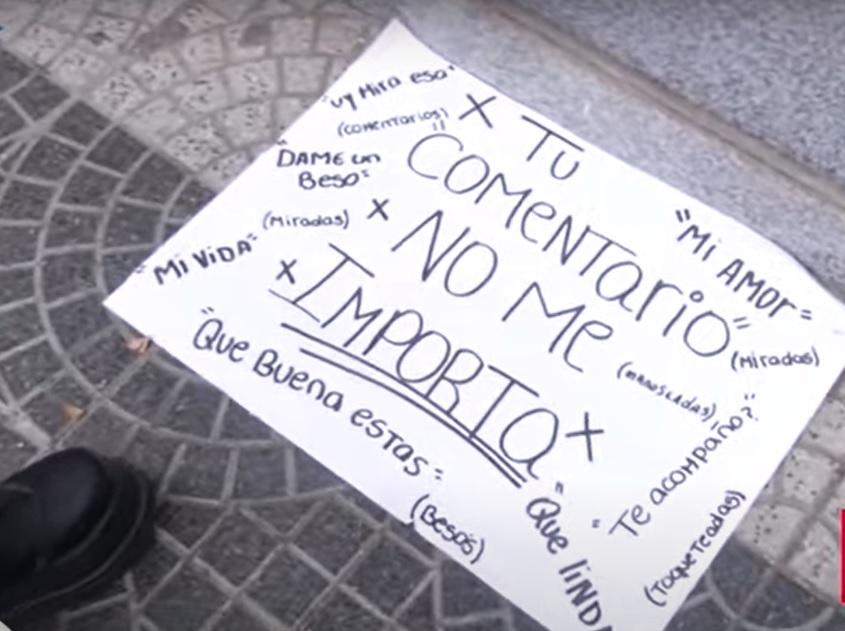 "Uy Mira eso"
(comentarios)
"DAME un
Beso"
(Miradas)
"MI VIDA"
X TU
"COMENTario"
X NO ME
X IMPORTA X
"Mi AMOr"
(Miradas)
(manoseadas)
"Te acompaño?"
(Toqueteadas)
"Que Buena estas"
(Besos)
"Que linda